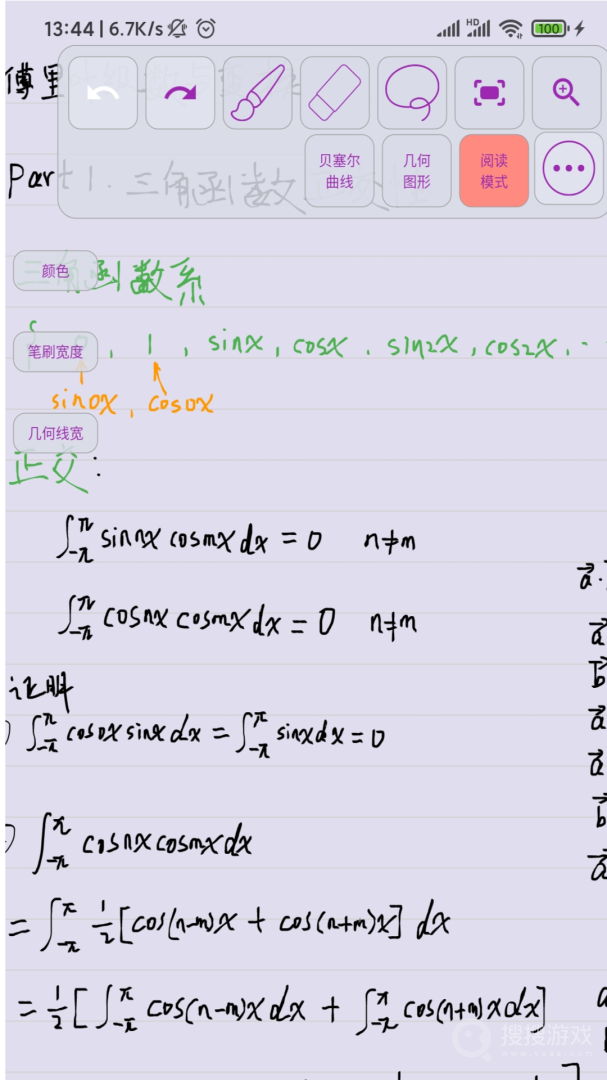 13:44 | 6.7K/s HD 100
傅里
贝塞尔曲线 几何图形 阅读模式
Part 1. 三角函数
颜色
三角函数系
笔刷宽度
0, 1, sinx, cosx, sin2x, cos2x, ··
sin0x, cos0x
几何线宽
正交:
∫_{-π}^{π} sin nx cos mx dx = 0 n≠m
∫_{-π}^{π} cos nx cos mx dx = 0 n≠m
a⃗·
a⃗
b⃗
证明
∫_{-π}^{π} cos0x sinx dx = ∫_{-π}^{π} sinx dx = 0
a⃗
a⃗
b⃗
∫_{-π}^{π} cos nx cos mx dx
a⃗
= ∫_{-π}^{π} 1/2 [cos(n-m)x + cos(n+m)x] dx
= 1/2 [∫_{-π}^{π} cos(n-m)x dx + ∫_{-π}^{π} cos(n+m)x dx]
搜搜游戏